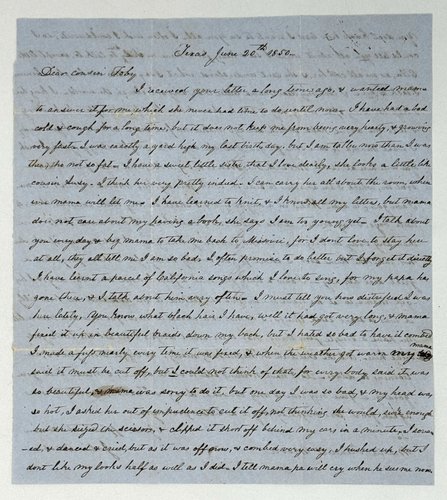 Texas, June 20th 1850.
Dear cousin Toby
I received your letter a long time ago, & wanted mama
to answer it for me which she never had time to do until now. I have had a bad
cold & cough for a long time, but it does not keep me from being very hearty, & growing
very fast. I was exactly a yard high my last birth day, but I am taller now than I was
then, tho not so fat. I have a sweet little sister that I love dearly, she looks a little like
cousin Susy. I think her very pretty indeed. I can carry her all about the room, when
ever mama will let me. I have learned to knit, & I know all my letters, but mama
does not care about my having a book, she says I am to young yet. I talk about
you every day & beg mama to take me back to Missouri, for I dont love to stay here
at all, they all tell me I am so bad, I often promise to do better but I forget it directly
I have learnt a parcel of California songs which I love to sing, for my papa has
gone there, & I talk about him very often. I must tell you how distressed I was
here lately, You know what black hair I have, well it had got very long, & mama
fixed it up in beautiful braids down my back, but I hated so bad to have it combed
I made a fuss nearly every time it was fixed, & when the weather got warm mama
said it must be cut off, but I could not think of that, for every body said it was
so beautiful, & mama was sorry to do it, but one day I was so bad, & my head was
so hot, I asked her out of impudence to cut it off, not thinking she would, sure enough
but she seized the scissors, & clipped it short off behind my ears in a minute. I scream
ed, & danced & cried, but as it was off now, & combed very easy, I hushed up, but I
dont like my looks half as well as I did. I tell mama pa will cry when he sees me now